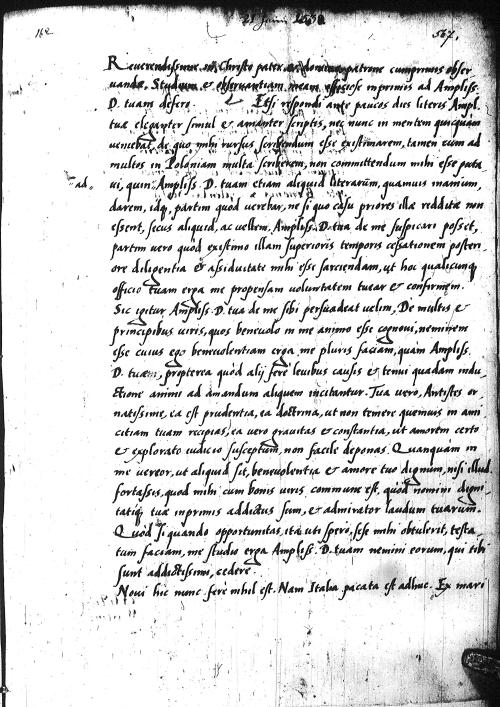 21 Junii
162
567.
Reverendissime in Christo pater et domine, patrone cumprimis obser
uandę, Studium et obseruantiam meam officiose inprimis ad Ampliss.
D. tuam defero. Etsi respondi ante paucos dies literis Ampl.
tuæ eleganter simul et amanter scriptis, nec nunc in mentem quicquam
veniebat, de quo mihi rursus scribendum esse existimarem, tamen cum ad
multos in Poloniam multa scriberem, non committendum mihi esse puta
ad.
ui, quin Ampliss. D. tuam etiam aliquid literarum, quamuis inanium,
darem, idq, partim quòd verebar, ne si quo casu priores illæ redditæ non
essent, secus aliquid, ac vellem, Ampliss. D. tua de me suspicari posset,
partim vero quòd existimo illam superioris temporis cessationem posteri
ore diligentia et assiduitate mihi esse sarciendam, ut hoc qualicunq
officio tuam erga me propensam voluntatem tuear et confirmem.
Sic igitur Ampliss. D. tua de me sibi persuadeat velim, De multis et
principibus viris, quos beneuolo in me animo esse cognoui, neminem
esse cuius ego beneuolentiam erga me pluris faciam, quàm Ampliss.
D. tuæ, propterea quòd alij ferè leuibus causis et tenui quadam indu
ctione animi ad amandum aliquem incitantur. Tua vero, Antistes or
natissime, ea est prudentia, ea doctrina, ut non temere quemuis in ami
citiam tuam recipias, ea vero grauitas et constantia, ut amorem certo
et explorato iudicio susceptum, non facile deponas. Quanquàm in
me vereor, ut aliquid sit, beneuolentia et amore tuo dignum, nisi illud
fortassis, quod mihi cum bonis viris commune est, quòd nomini digni-
tatiq tuæ inprimis addictus sum, et admirator laudum tuarum.
Quòd si quando opportunitas, ita uti spero, sese mihi obtulerit, testa
tum faciam, me studio erga Ampliss. D. tuam nemini eorum, qui tibi
sunt addictissimi, cedere.
Noui hic nunc ferè nihil est. Nam Italia pacata est adhuc. Ex mari